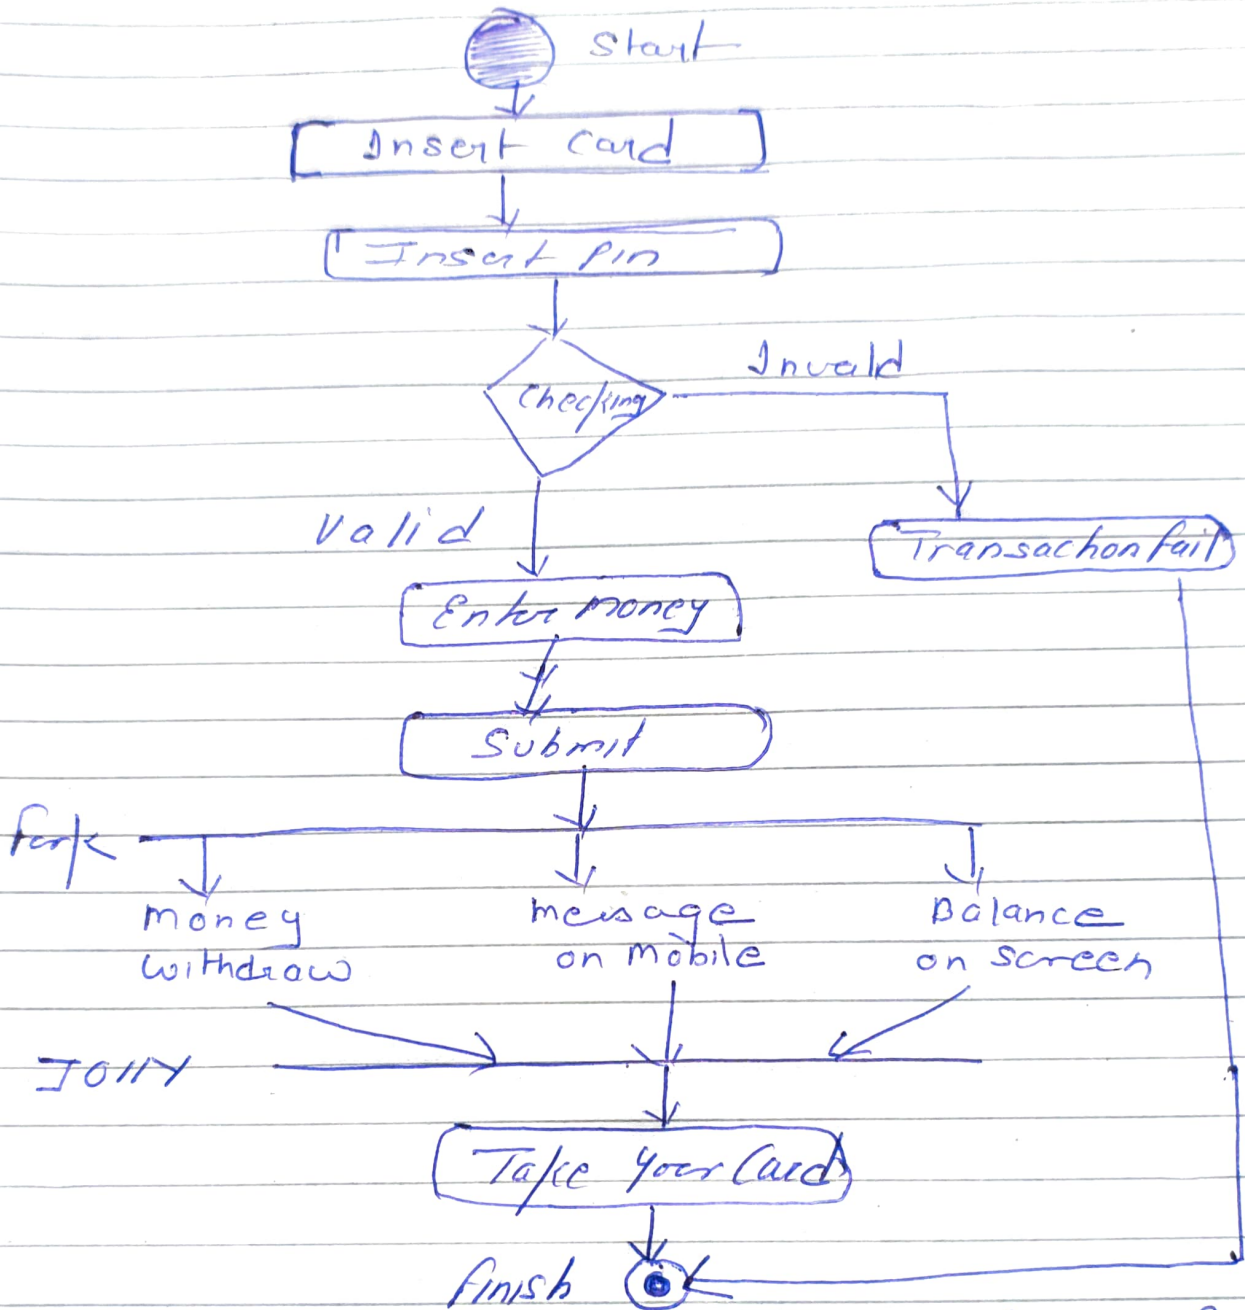 Start
Insert Card
Insert Pin
Invald
Checking
Valid
Transaction fail
Enter money
Submit
Fork
Money
withdraw
Message
on mobile
Balance
on screen
Take your Card
finish